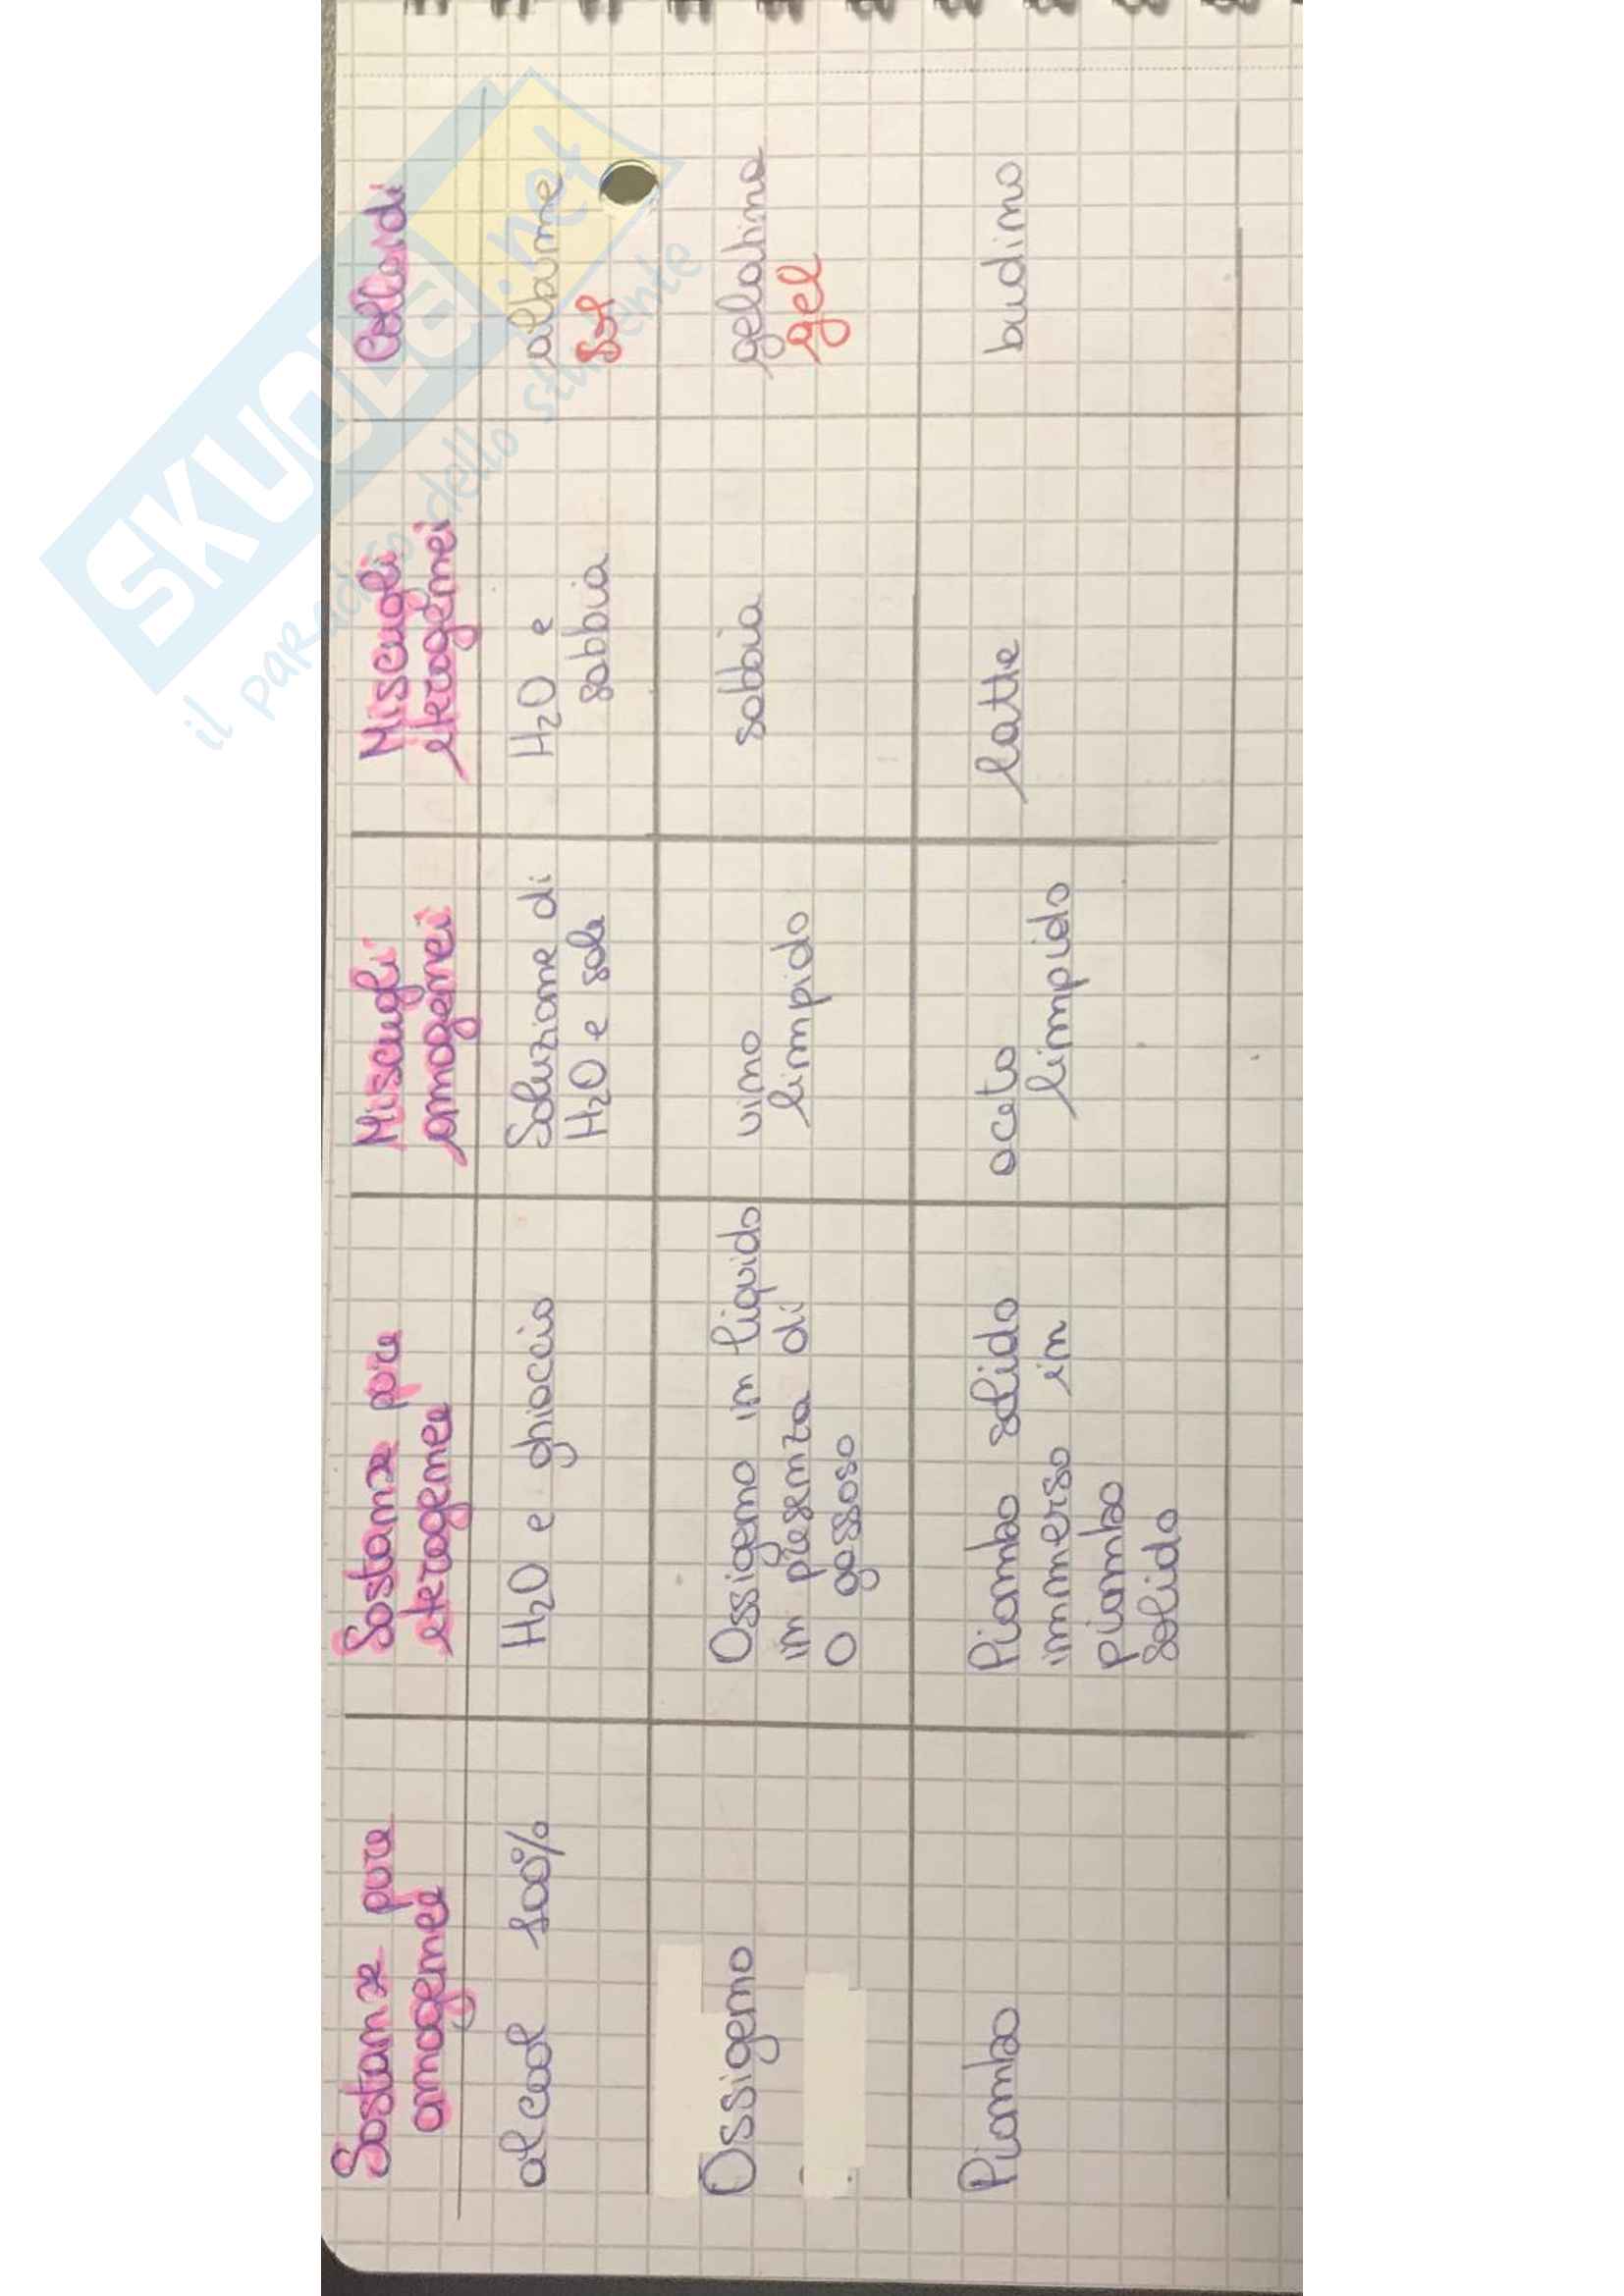 Sostanze pure
omogenee
Sostanze pure
eterogenee
Miscugli
omogenei
Miscugli
eterogenei
Colloidi
alcool 100%
H₂O e ghiaccio
Soluzione di
H₂O e sale
H₂O e
sabbia
albume
sol
Ossigeno
Ossigeno in liquido
in presenza di
O gassoso
vino
limpido
sabbia
gelatina
gel
Piombo
Piombo solido
immerso in
piombo
solido
aceto
limpido
latte
budino
SKUOLA.net
il paradiso dello studente